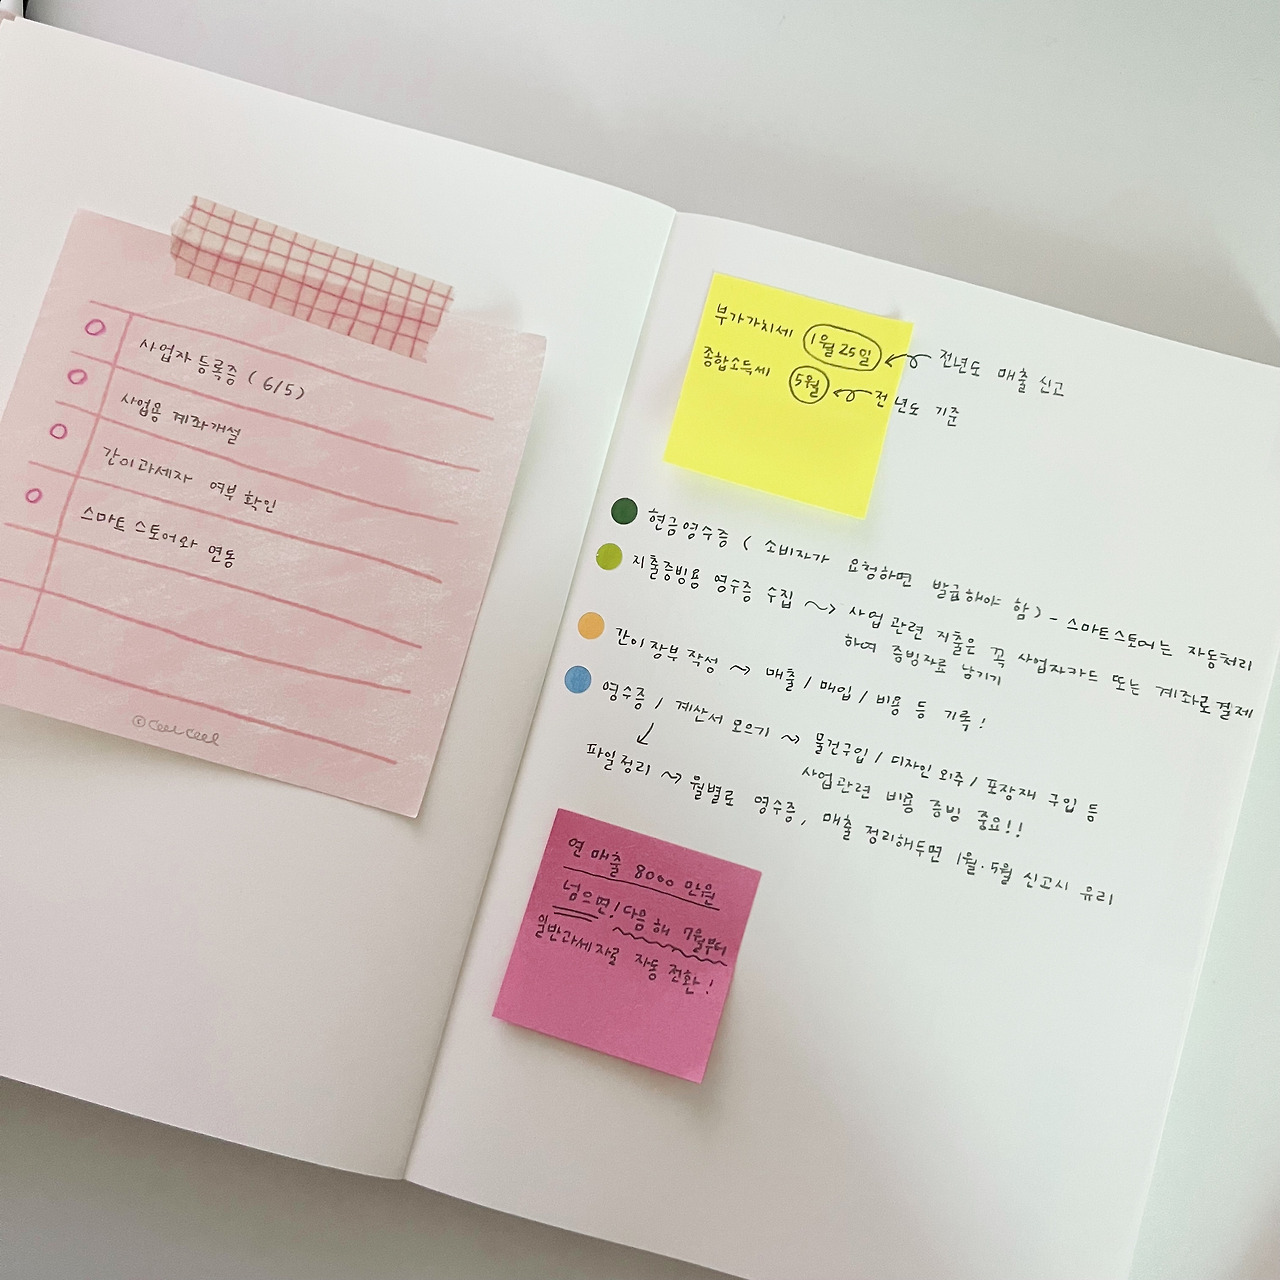 사업자 등록증 (6/5)
사업용 계좌개설
간이과세자 여부 확인
스마트 스토어와 연동
© Ceel Ceel
부가가치세 1월 25일 전년도 매출 신고
종합소득세 5월 전년도 기준
현금영수증 ( 소비자가 요청하면 발급해야 함 ) - 스마트스토어는 자동처리
지출증빙용 영수증 수집 ~> 사업 관련 지출은 꼭 사업자카드 또는 계좌로 결제
하여 증빙자료 남기기
간이장부 작성 ~> 매출 / 매입 / 비용 등 기록!
영수증 / 계산서 모으기 ~> 물건구입 / 디자인 외주 / 포장재 구입 등
사업관련 비용 증빙 중요!!
파일정리 ~> 월별로 영수증, 매출 정리해두면 1월·5월 신고시 유리
연 매출 8000 만원
넘으면! 다음 해 7월부터
일반과세자로 자동 전환!